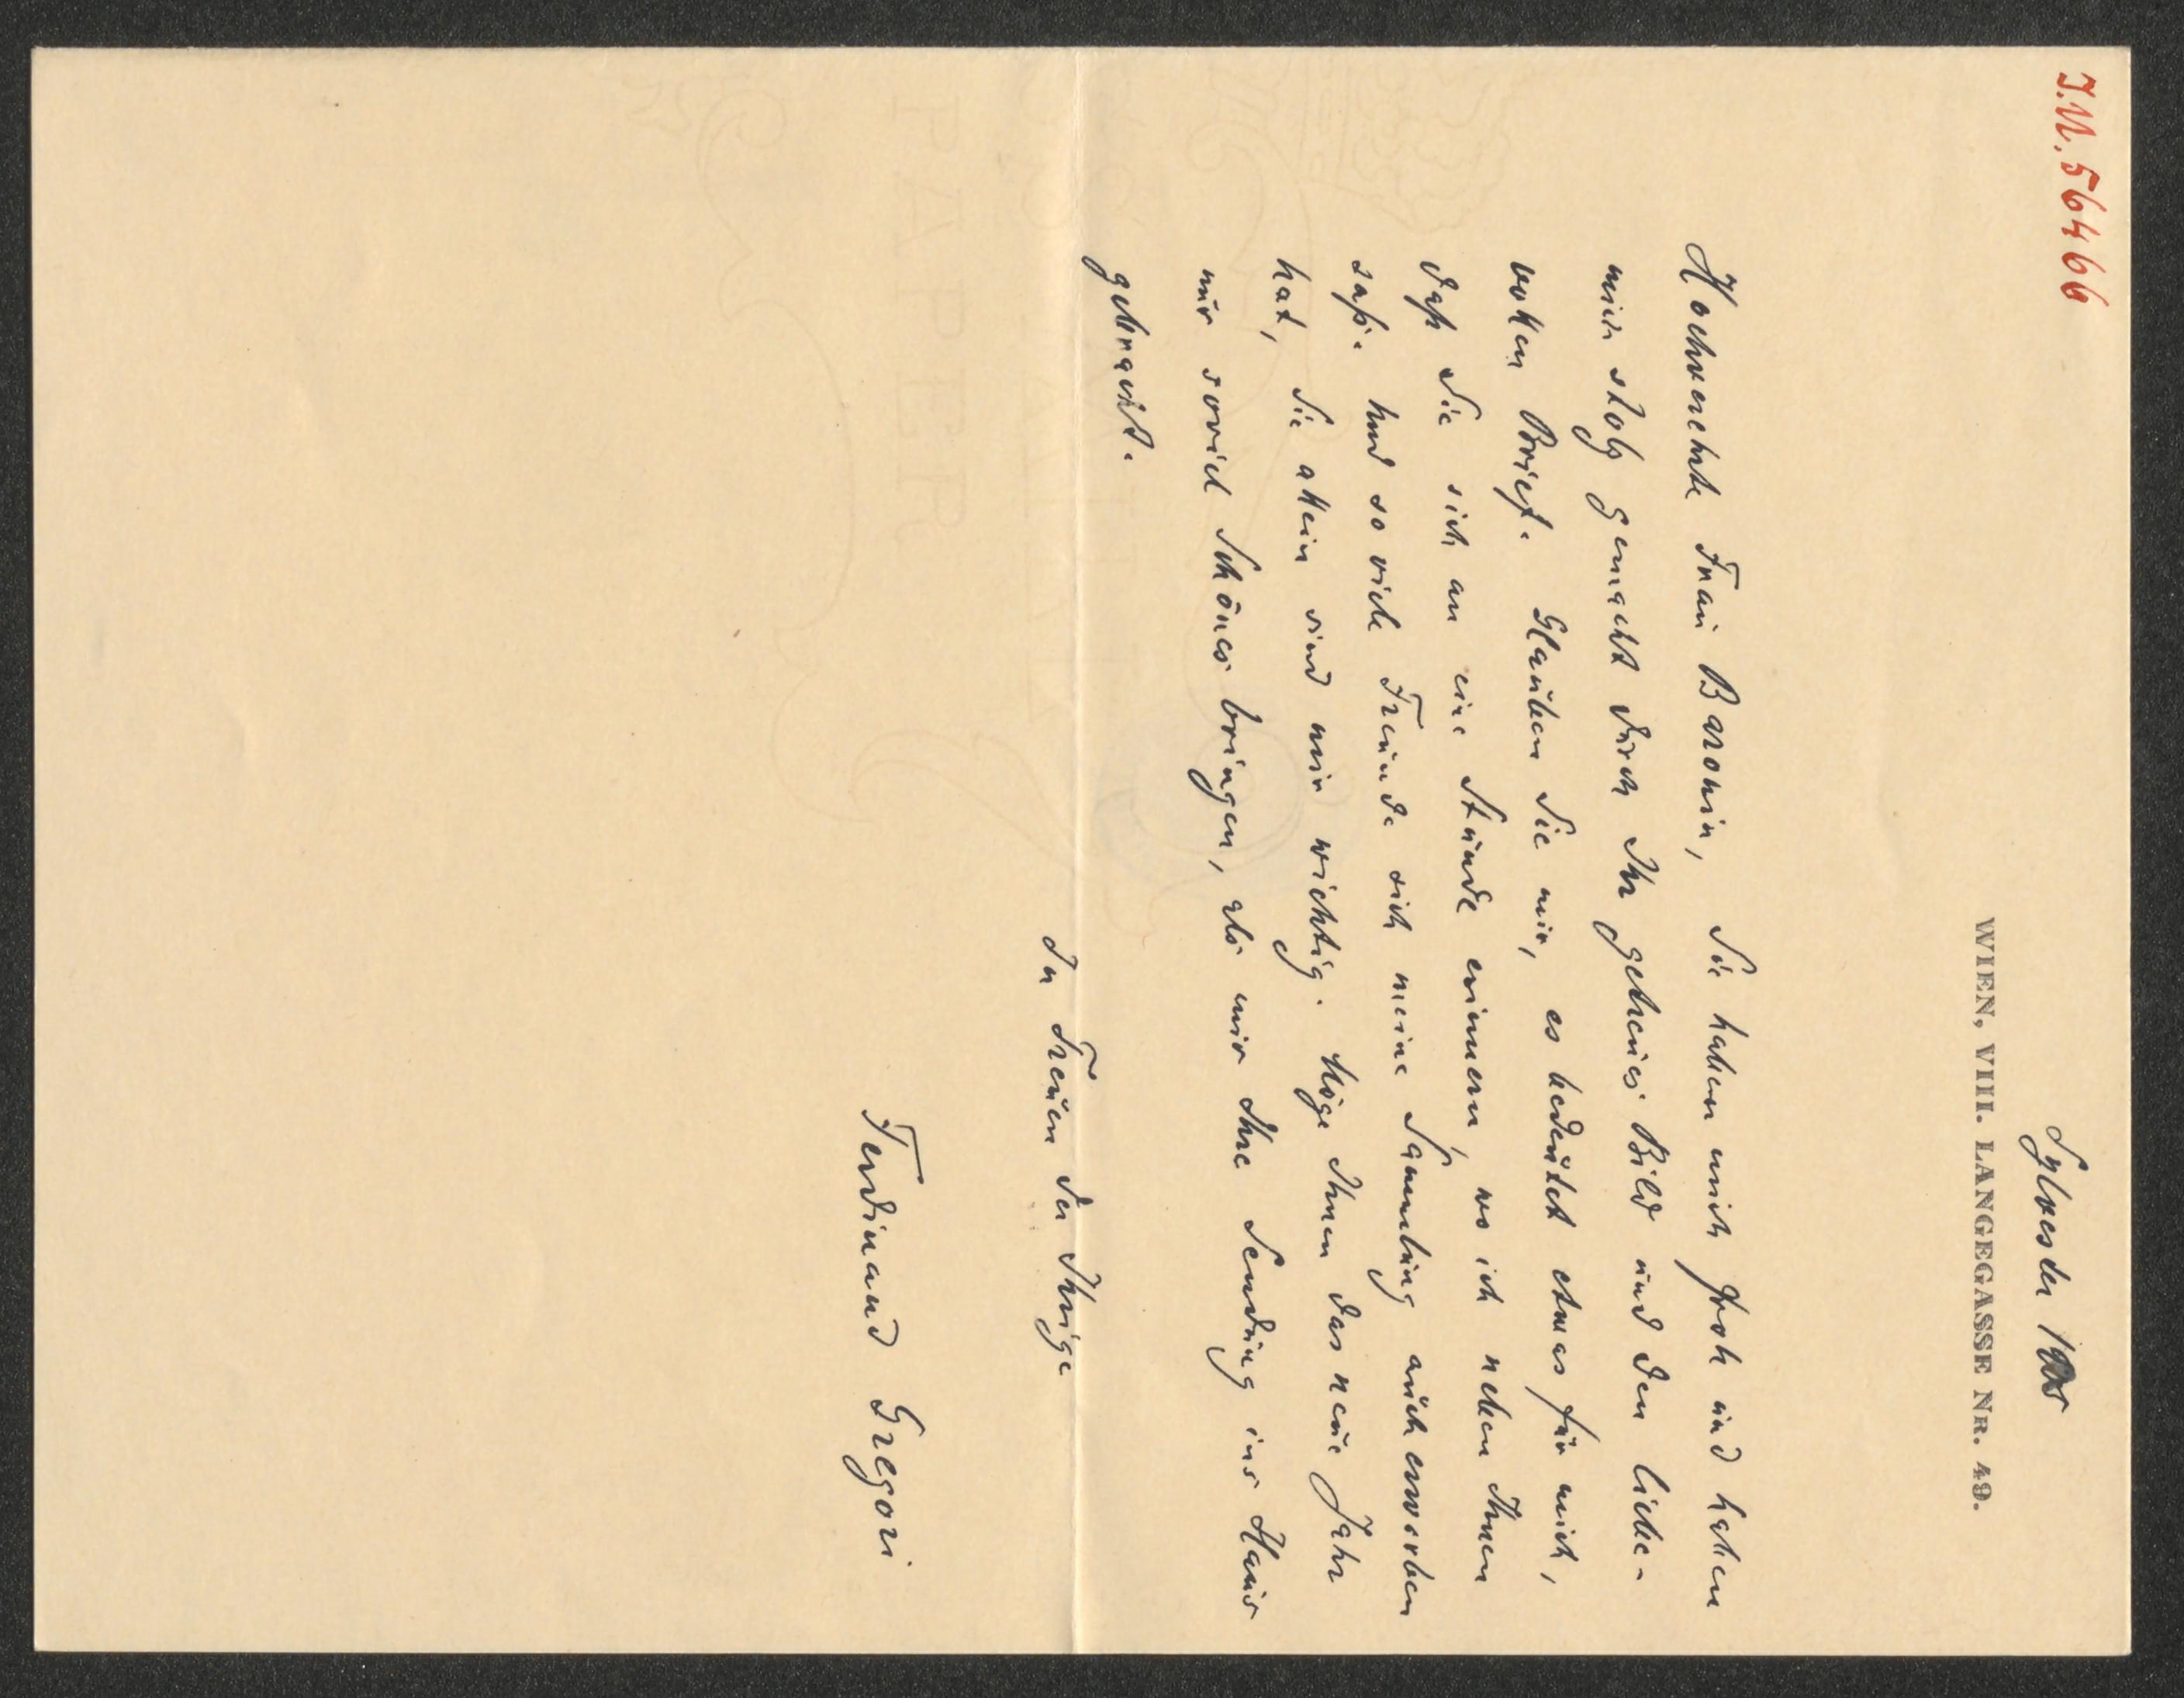 J.N. 56466
Sylvester 1905
WIEN, VIII. LANGEGASSE NR. 49.
Hochverehrte Frau Baronin, Sie haben mich froh und haben
mich stolz gemacht durch Ihr getreues Bild und den liebe-
vollen Brief. Glauben Sie mir, es bedeutet etwas für mich,
daß Sie sich an eine Stunde erinnern, wo ich neben Ihnen
saß. Und so viele Freunde sich meine Sammlung auch erworben
hat, Sie allein sind mir wichtig. Möge Ihnen das neue Jahr
nur soviel Schönes bringen, als mir Ihre Sendung ins Haus
gebracht.
In Treuen der Ihrige
Ferdinand Gregori
PAPER